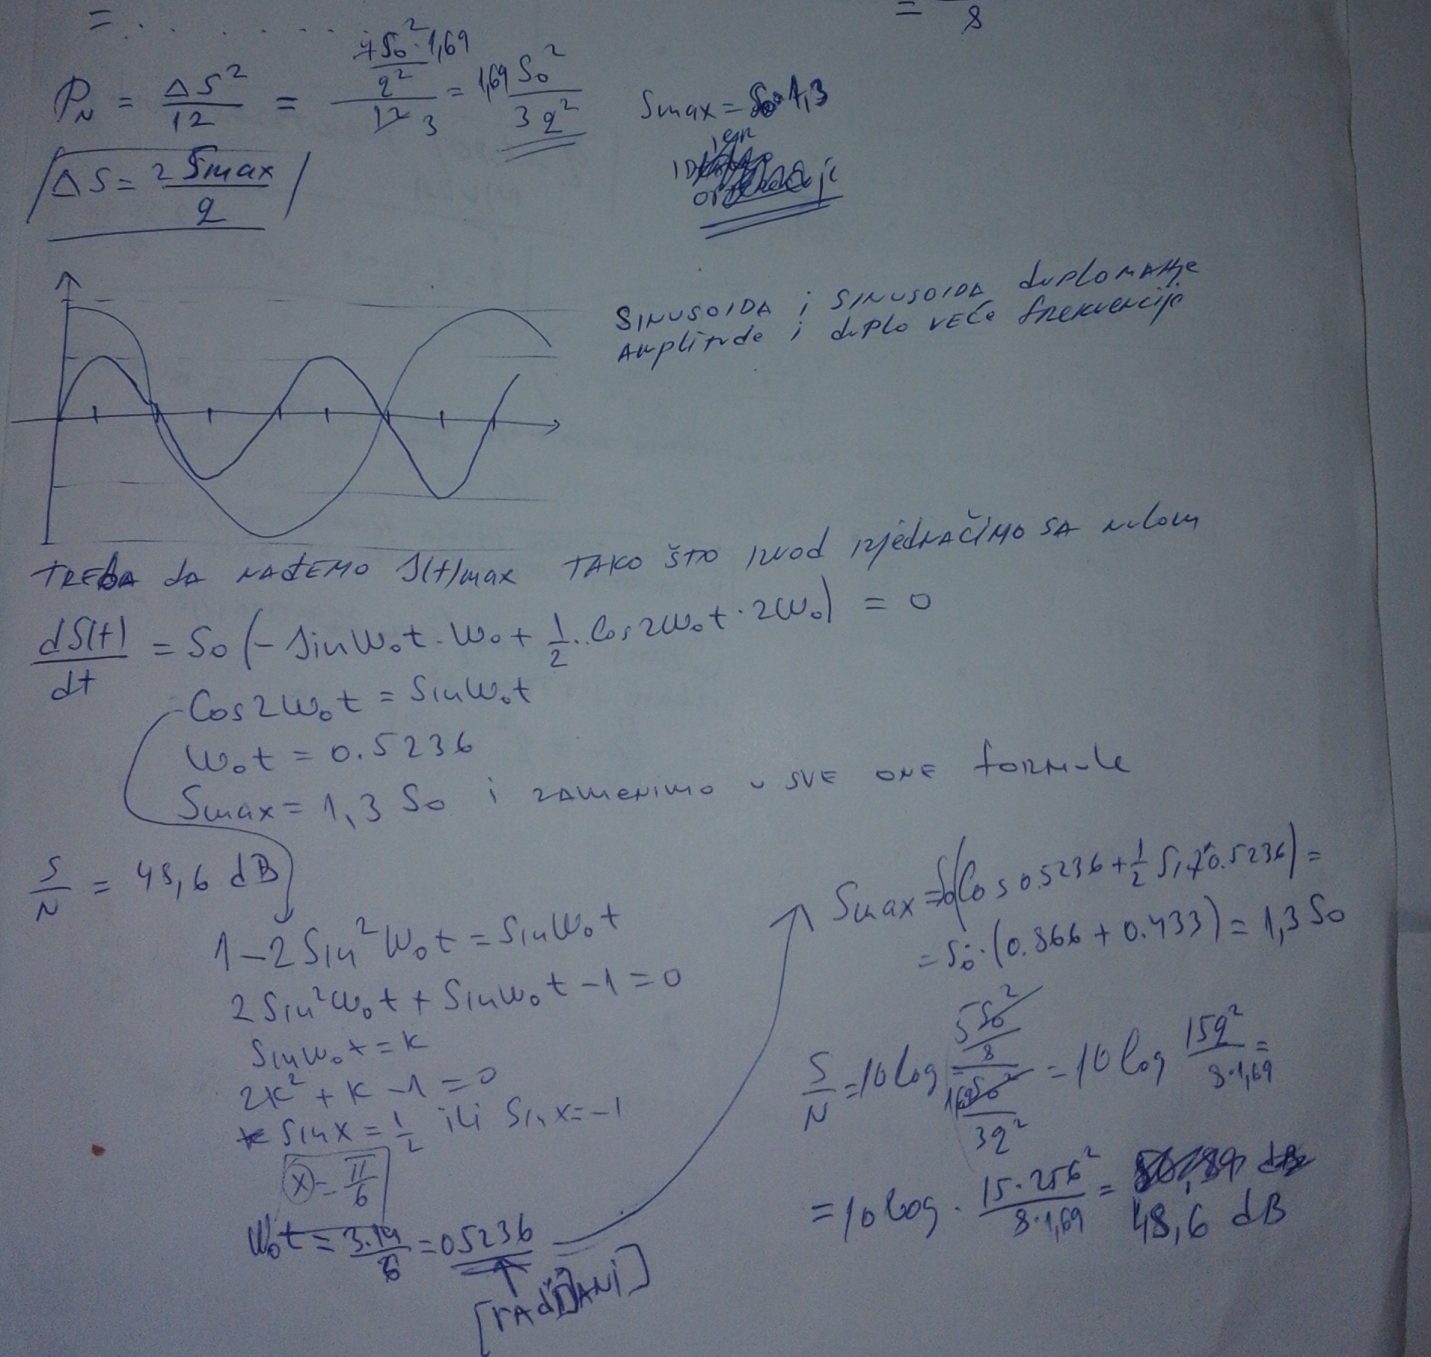 = . . . . . . . . = —/8
P_N = ΔS²/12 = (4S₀²·1,69/q²)/12 3 = 1,69 S₀²/3q²
Smax = S₀·1,3
ΔS = 2 Smax/q
SINUSOIDA i SINUSOIDA duplo manje
Amplitude i duplo veće frekvencije
TREBA da NAĐEMO S(t)max TAKO ŠTO izvod izjednačimo SA nulom
dS(t)/dt = S₀(-sinω₀t·ω₀ + 1/2·cos2ω₀t·2ω₀) = 0
cos2ω₀t = sinω₀t
ω₀t = 0.5236
Smax = 1,3 S₀ i zamenimo u SVE ONE formule
S/N = 48,6 dB
1-2sin²ω₀t = sinω₀t
2sin²ω₀t + sinω₀t - 1 = 0
sinω₀t = k
2k² + k - 1 = 0
sinx = 1/2 ili sinx = -1
x = π/6
ω₀t = 3.14/6 = 0.5236
[radijANI]
Smax = S₀(cos0.5236 + 1/2 sin2·0.5236) =
= S₀·(0.866 + 0.433) = 1,3 S₀
S/N = 10log (5S₀²/8)/(1,69S₀²/3q²) = 10log 15q²/8·1,69 =
= 10log · 15·256²/8·1,69 = 48,6 dB